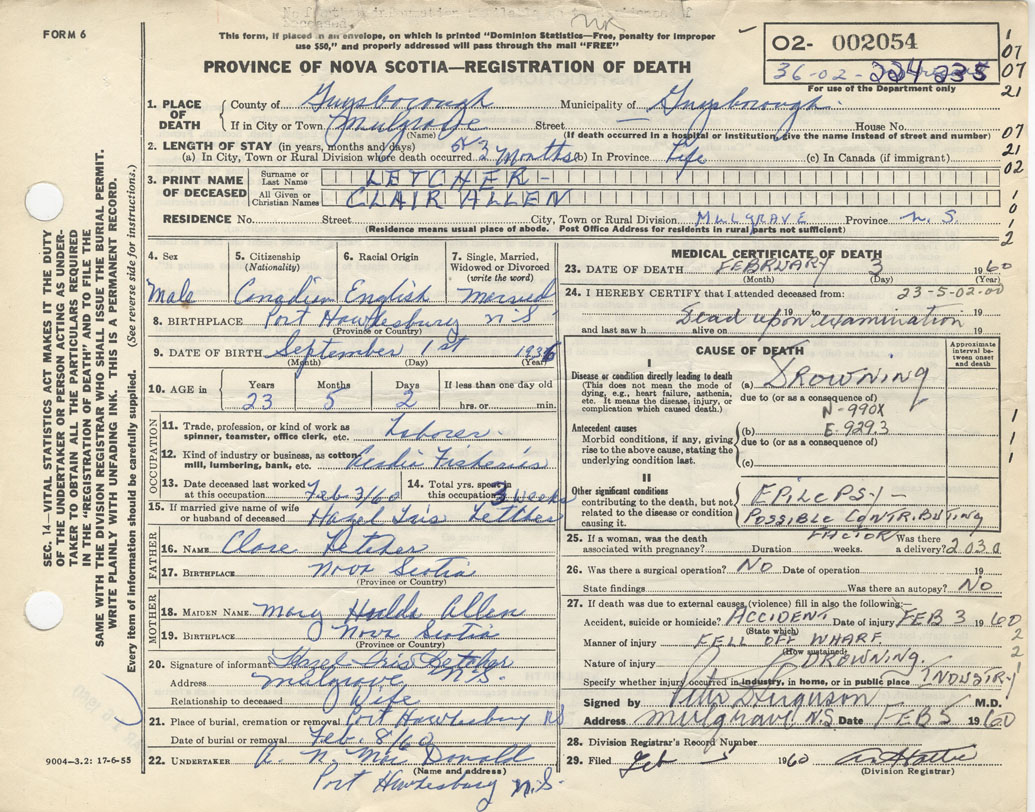 FORM 6
This form, if placed in an envelope, on which is printed "Dominion Statistics—Free, penalty for improper
use $50," and properly addressed will pass through the mail "FREE"
02- 002054
36-02-
For use of the Department only
PROVINCE OF NOVA SCOTIA—REGISTRATION OF DEATH
1. PLACE OF DEATH
County of Guysborough Municipality of Guysborough
If in City or Town Mulgrave Street — House No.
(Name) (If death occurred in a hospital or institution, give the name instead of street and number)
2. LENGTH OF STAY (in years, months and days)
(a) In City, Town or Rural Division where death occurred 3 Months (b) In Province Life (c) In Canada (if immigrant)
3. PRINT NAME OF DECEASED
Surname or Last Name LETCHER -
All Given or Christian Names CLAIR ALLEN
RESIDENCE No. Street City, Town or Rural Division MULGRAVE Province N. S.
(Residence means usual place of abode. Post Office Address for residents in rural parts not sufficient)
4. Sex Male
5. Citizenship (Nationality) Canadian
6. Racial Origin English
7. Single, Married, Widowed or Divorced (write the word) Married
8. BIRTHPLACE Port Hawkesbury N.S.
(Province or Country)
9. DATE OF BIRTH September 1st 1936
(Month) (Day) (Year)
10. AGE in Years 23 Months 5 Days 2 If less than one day old hrs. or min.
OCCUPATION
11. Trade, profession, or kind of work as spinner, teamster, office clerk, etc. Laborer
12. Kind of industry or business, as cotton-mill, lumbering, bank, etc. Acadia Fisheries
13. Date deceased last worked at this occupation Feb 3/60
14. Total yrs. spent in this occupation 3 weeks
15. If married give name of wife or husband of deceased Hazel Iris Letcher
FATHER
16. NAME Letcher
17. BIRTHPLACE Nova Scotia
(Province or Country)
MOTHER
18. MAIDEN NAME Mary Allen
19. BIRTHPLACE Nova Scotia
(Province or Country)
20. Signature of informant Hazel Iris Letcher
Address Mulgrave N.S.
Relationship to deceased Wife
21. Place of burial, cremation or removal Port Hawkesbury NS
Date of burial or removal Feb. 8/60
22. UNDERTAKER A. N. MacDonald
(Name and address)
Port Hawkesbury N.S.
MEDICAL CERTIFICATE OF DEATH
23. DATE OF DEATH FEBRUARY 3 1960
(Month) (Day) (Year)
24. I HEREBY CERTIFY that I attended deceased from: 23-5-02-00
19 to 19
Dead upon examination
and last saw h alive on 19
CAUSE OF DEATH
Approximate interval between onset and death
I
Disease or condition directly leading to death
(This does not mean the mode of dying, e.g., heart failure, asthenia, etc. It means the disease, injury, or complication which caused death.)
(a) DROWNING
due to (or as a consequence of)
N-990X
Antecedent causes
Morbid conditions, if any, giving rise to the above cause, stating the underlying condition last.
(b) E-929.3
due to (or as a consequence of)
(c)
II
Other significant conditions
contributing to the death, but not related to the disease or condition causing it.
EPILEPSY -
POSSIBLE CONTRIBUTING
FACTOR
25. If a woman, was the death associated with pregnancy? Duration weeks. Was there a delivery? 2030
26. Was there a surgical operation? NO Date of operation 19
State findings Was there an autopsy? NO
27. If death was due to external causes (violence) fill in also the following:—
Accident, suicide or homicide? ACCIDENT Date of injury FEB 3 1960
(State which)
Manner of injury FELL OFF WHARF
(How sustained)
Nature of injury DROWNING.
Specify whether injury occurred in industry, in home, or in public place INDUSTRY
Signed by Ferguson M.D.
Address Mulgrave N.S. Date FEB 5 1960
28. Division Registrar's Record Number
29. Filed Feb 5 1960
(Division Registrar)
9004—3.2: 17-6-55
SEC. 14—VITAL STATISTICS ACT MAKES IT THE DUTY
OF THE UNDERTAKER OR PERSON ACTING AS UNDER-
TAKER TO OBTAIN ALL THE PARTICULARS REQUIRED
IN THE "REGISTRATION OF DEATH" AND TO FILE THE
SAME WITH THE DIVISION REGISTRAR WHO SHALL ISSUE THE BURIAL PERMIT.
WRITE PLAINLY WITH UNFADING INK. THIS IS A PERMANENT RECORD.
Every item of information should be carefully supplied. (See reverse side for instructions.)
1
07
07
21
07
21
02
1
0
1
2
1
1
1
2
2
1